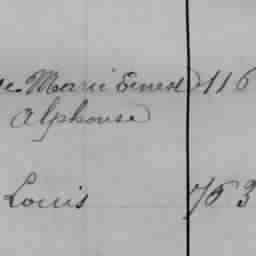 Marie Ernest 116
Alphonse
Louis 763